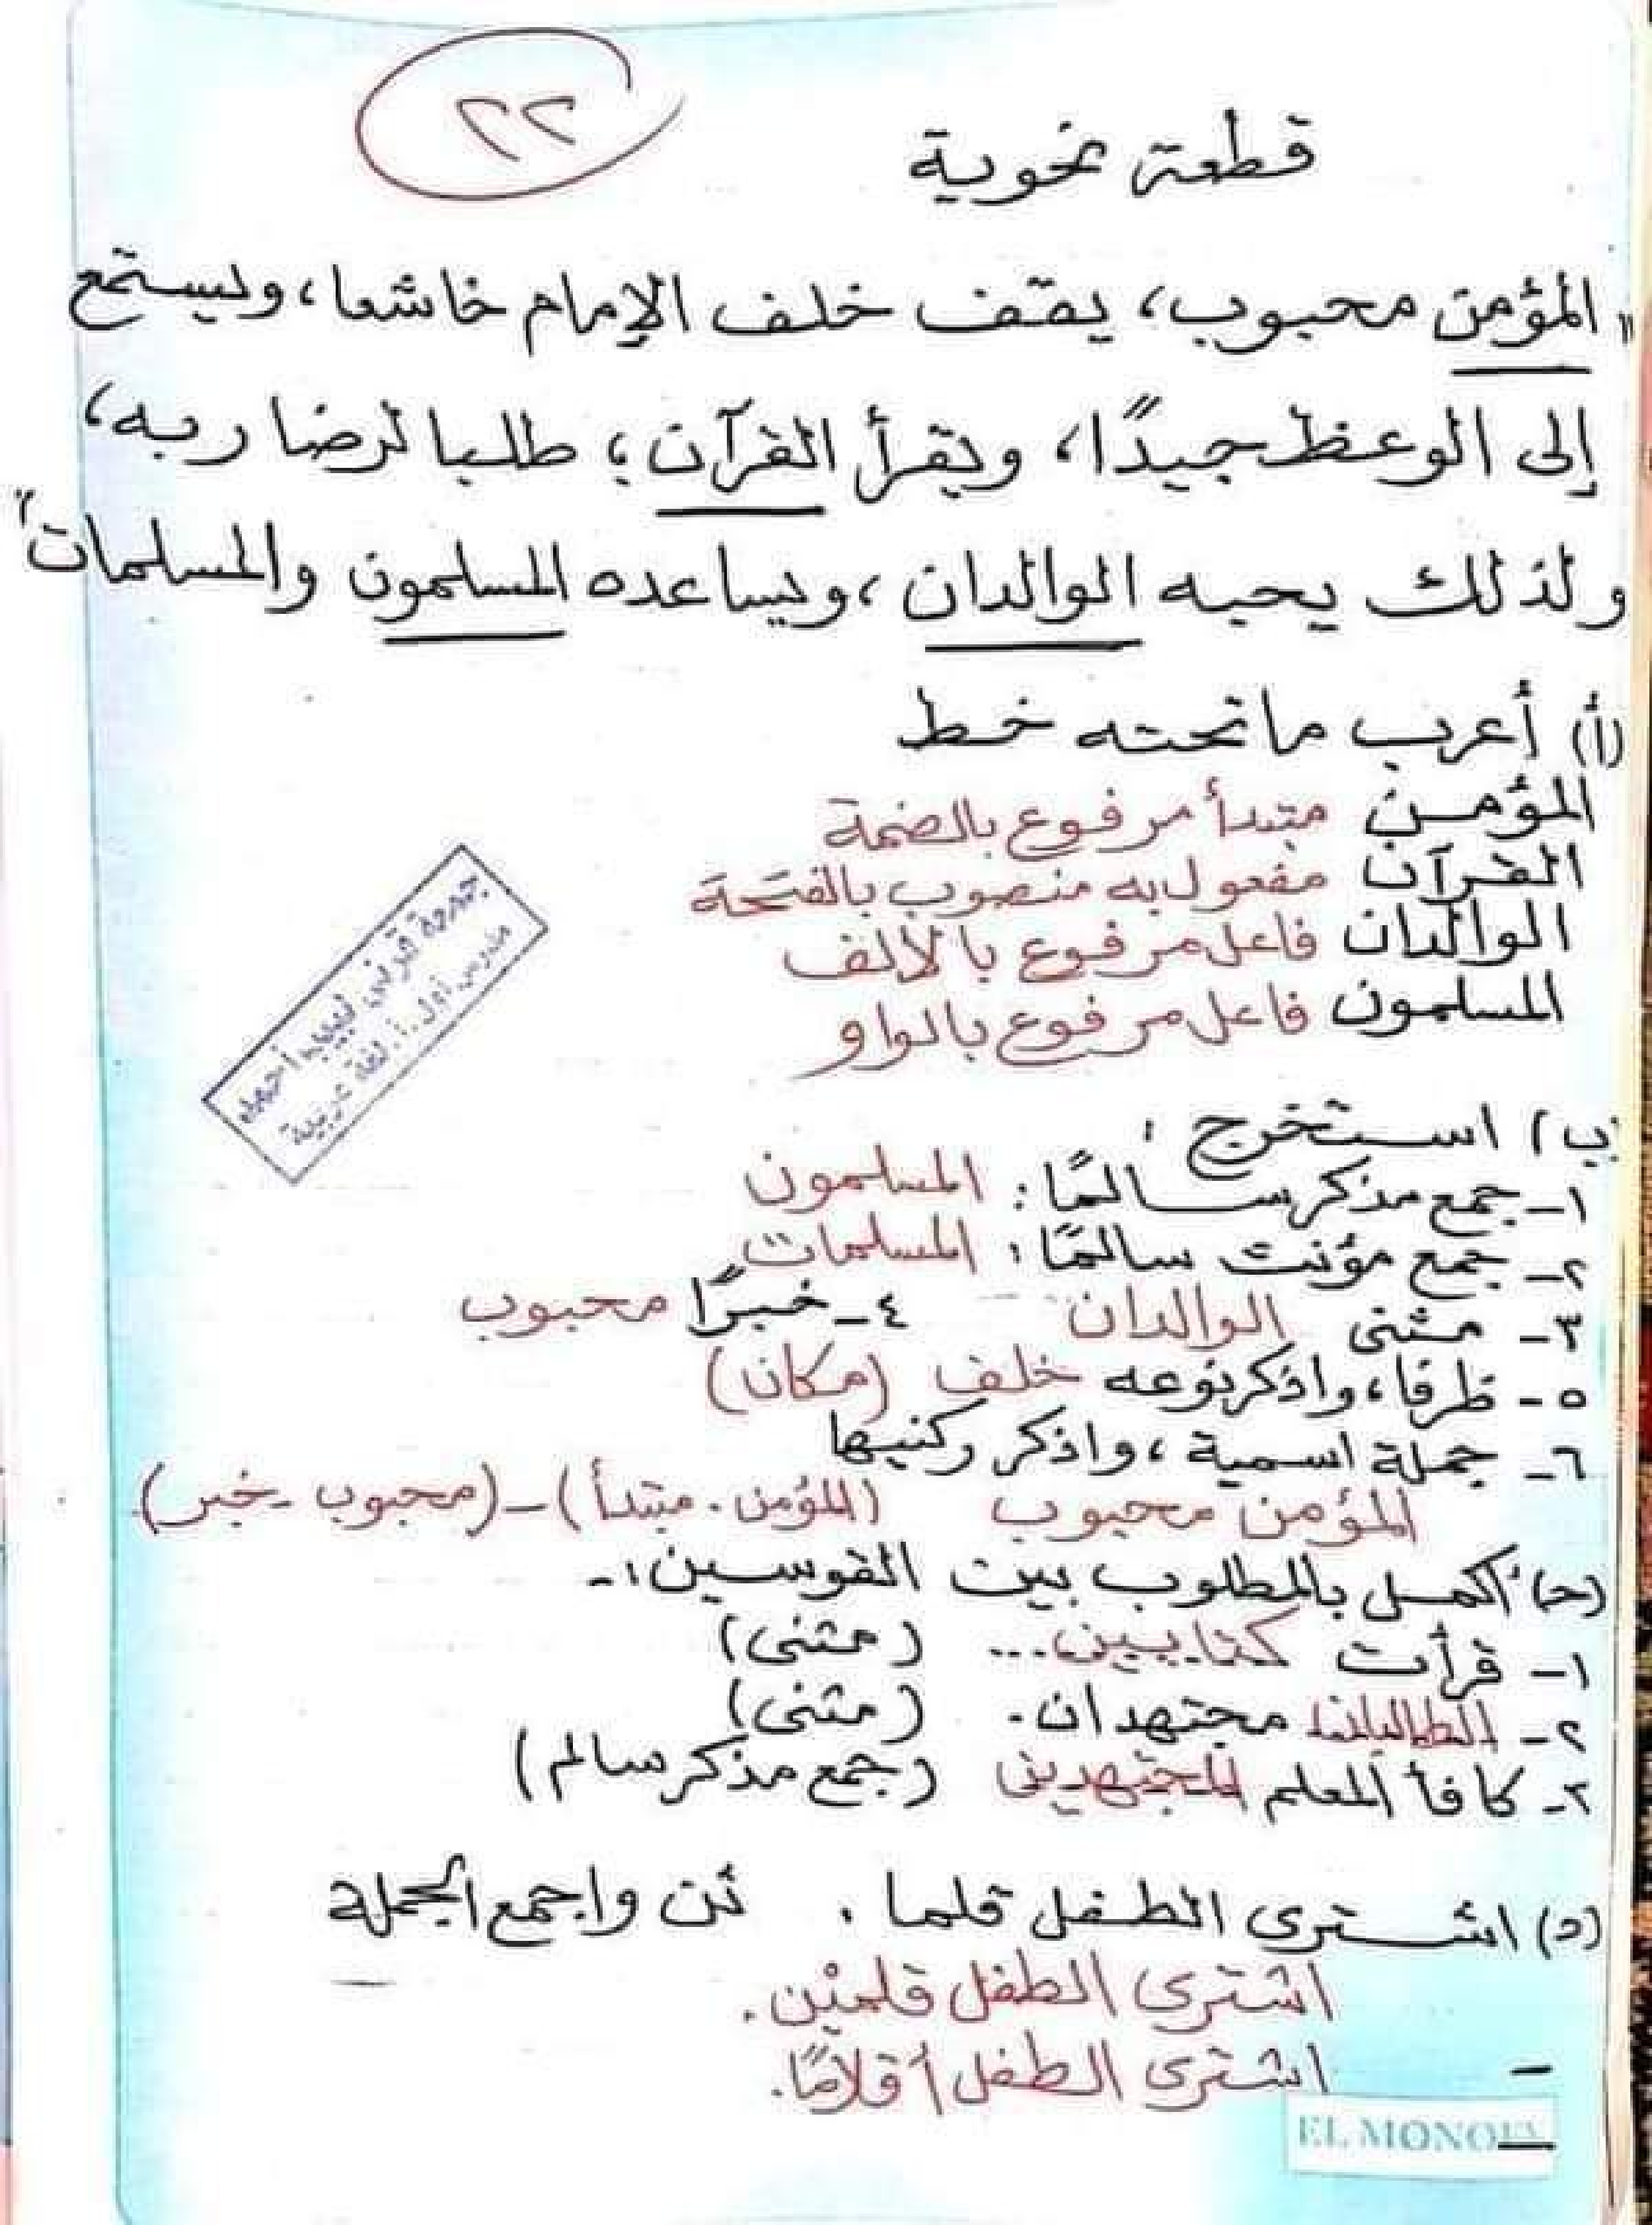 ٢٢
قطعة نحوية
"المؤمن محبوب، يقف خلف الإمام خاشعا، ويستمع
إلى الوعظ جيدًا، ويقرأ القرآن؛ طلبا لرضا ربه،
ولذلك يحبه الوالدان، ويساعده المسلمون والمسلمات"
(أ) أعرب ما تحته خط
المؤمن مبتدأ مرفوع بالضمة
القرآن مفعول به منصوب بالفتحة
الوالدان فاعل مرفوع بالألف
المسلمون فاعل مرفوع بالواو
جمعة قرني لبيب أحمد
مدرس أول أ. لغة عربية
ب) استخرج :
١- جمع مذكر سالمًا: المسلمون
٢- جمع مؤنث سالمًا: المسلمات
٣- مثنى الوالدان ٤- خبرًا محبوب
٥- ظرفا، واذكر نوعه خلف (مكان)
٦- جملة اسمية، واذكر ركنيها
المؤمن محبوب (المؤمن - مبتدأ) - (محبوب - خبر)
(ج) أكمل بالمطلوب بين القوسين:-
١- قرأت كتابين... (مثنى)
٢- الطالبان مجتهدان. (مثنى)
٣- كافأ المعلم المجتهدين (جمع مذكر سالم)
(د) اشترى الطفل قلما. ثن واجمع الجملة
اشترى الطفل قلمين.
- اشترى الطفل أقلامًا.
EL MONOFY